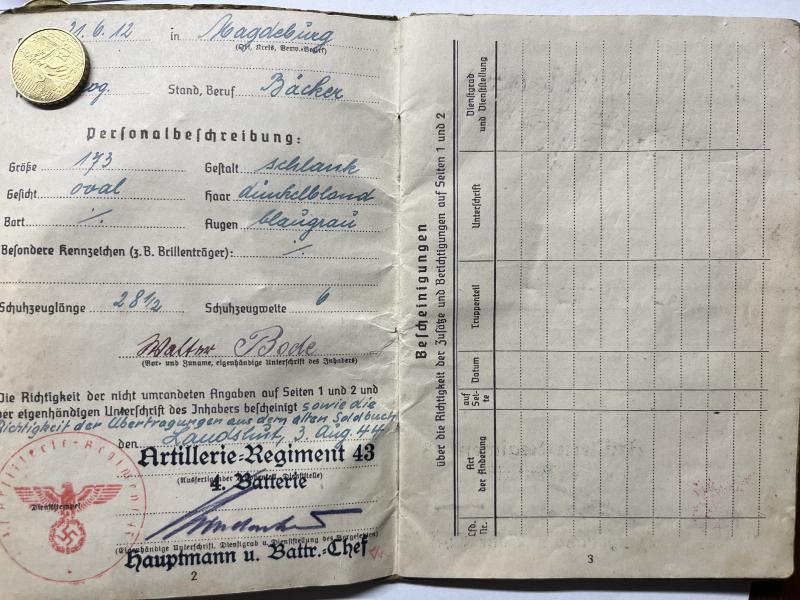 21.6.12 in Magdeburg
(Ort, Kreis, Verw.-Bezirk)
Stand, Beruf Bäcker
Personalbeschreibung:
Größe 173 Gestalt schlank
Gesicht oval Haar dunkelblond
Bart ./. Augen blaugrau
Besondere Kennzeichen (z.B. Brillenträger): ./.
Schuhzeuglänge 28 1/2 Schuhzeugweite 6
Walter Bode
(Vor- und Zuname, eigenhändige Unterschrift des Inhabers)
Die Richtigkeit der nicht umrandeten Angaben auf Seiten 1 und 2 und
der eigenhändigen Unterschrift des Inhabers bescheinigt sowie die
Richtigkeit der Übertragungen aus dem alten Soldbuch
den Landshut, 3. Aug. 44
Artillerie-Regiment 43
4. Batterie
Dienststempel
(Eigenhändige Unterschrift, Dienstgrad u. Dienststellung des Vorgesetzten)
Hauptmann u. Battr.-Chef
2
Bescheinigungen
über die Richtigkeit der Zusätze und Berichtigungen auf Seiten 1 und 2
Lfd. Nr.
Art der Änderung
auf Sei-te
Datum
Truppenteil
Unterschrift
Dienstgrad und Dienststellung
3